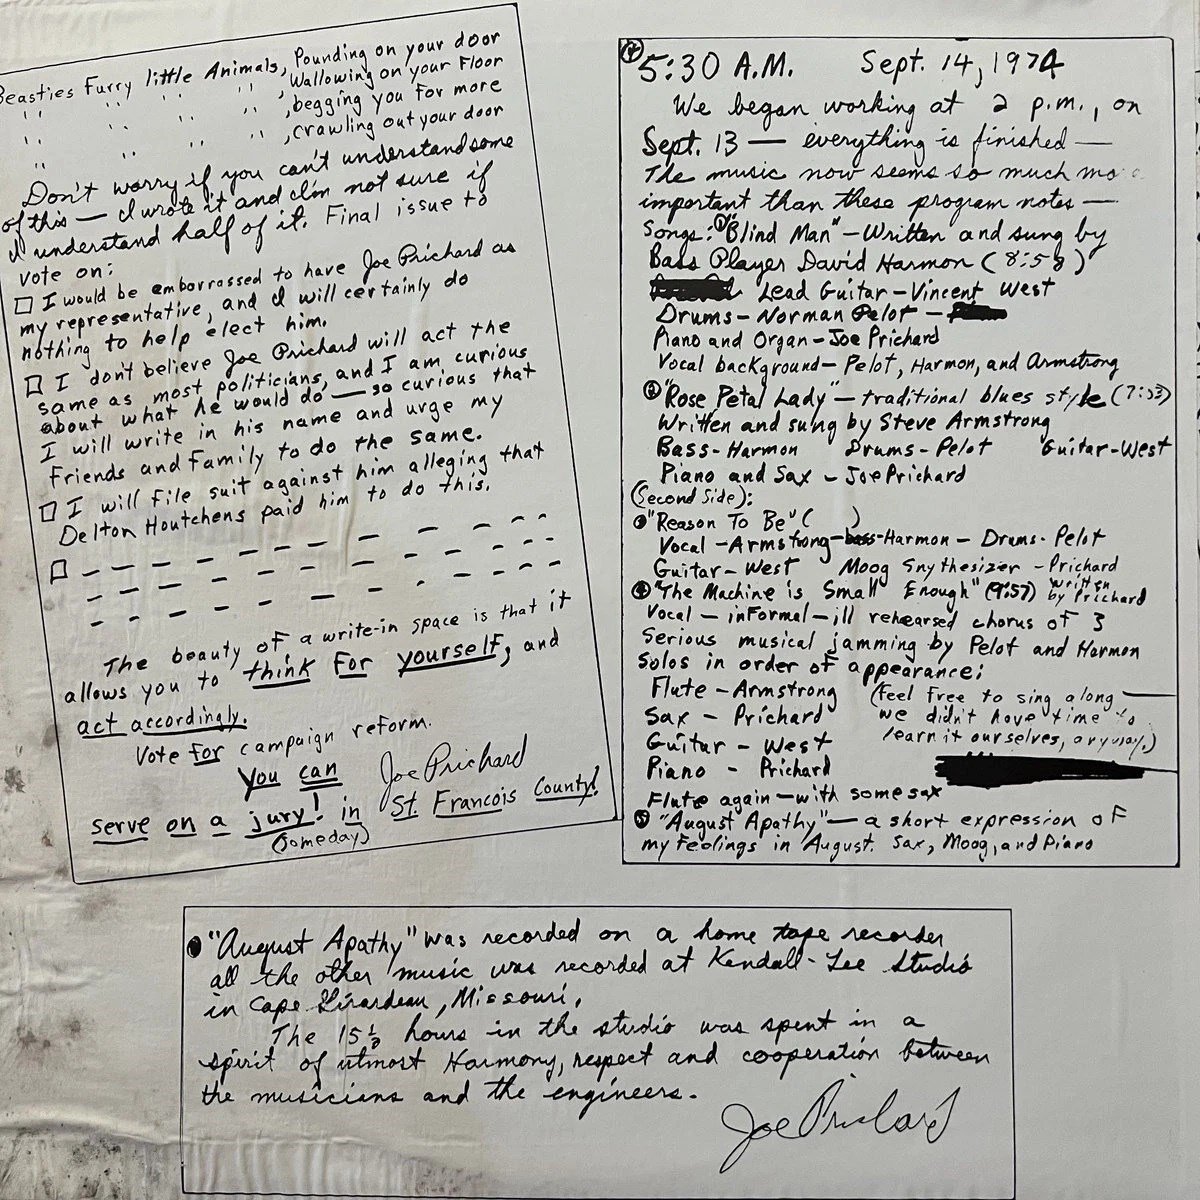 Beasties Furry little Animals, Pounding on your door
'' '' '' '' , Wallowing on your Floor
'' '' '' '' , begging you For more
'' '' '' '' , Crawling out your door
Don't worry if you can't understand some
of this — I wrote it and I'm not sure if
I understand half of it. Final issue to
vote on:
☐ I would be embarrassed to have Joe Prichard as
my representative, and I will certainly do
nothing to help elect him.
☐ I don't believe Joe Prichard will act the
same as most politicians, and I am curious
about what he would do — so curious that
I will write in his name and urge my
Friends and Family to do the same.
☐ I will file suit against him alleging that
Delton Houtchens paid him to do this.
☐ — — — — — — — — —
— — — — — — — — —
— — — — — — — — —
The beauty of a write-in space is that it
allows you to think For yourself, and
act accordingly.
Vote for campaign reform.
You can Joe Prichard
serve on a jury! in St. Francois County!
(someday)
5:30 A.M. Sept. 14, 1974
We began working at 2 p.m., on
Sept. 13 — everything is finished —
The music now seems so much
important than these program notes —
Songs: ① "Blind Man" — Written and sung by
Bass Player David Harmon (8:58)
Lead Guitar — Vincent West
Drums — Norman Pelot —
Piano and Organ — Joe Prichard
Vocal background — Pelot, Harmon, and Armstrong
② "Rose Petal Lady" — traditional blues style (7:53)
Written and sung by Steve Armstrong
Bass - Harmon Drums - Pelot Guitar - West
Piano and Sax - Joe Prichard
(Second Side):
③ "Reason To Be" ( )
Vocal - Armstrong - bass - Harmon - Drums - Pelot
Guitar - West Moog Snythesizer - Prichard
④ "The Machine is Small Enough" (9:57) written by Prichard
Vocal — inFormal — ill rehearsed chorus of 3
Serious musical jamming by Pelot and Harmon
Solos in order of appearance:
Flute - Armstrong (feel free to sing along —
Sax - Prichard we didn't have time to
Guitar - West learn it ourselves, anyway.)
Piano - Prichard
Flute again — with some sax
⑤ "August Apathy" — a short expression of
my feelings in August. Sax, Moog, and Piano
"August Apathy" was recorded on a home tape recorder
all the other music was recorded at Kendall-Lee Studio
in Cape Girardeau, Missouri.
The 15 ½ hours in the studio was spent in a
spirit of utmost Harmony, respect and cooperation between
the musicians and the engineers.
Joe Prichard